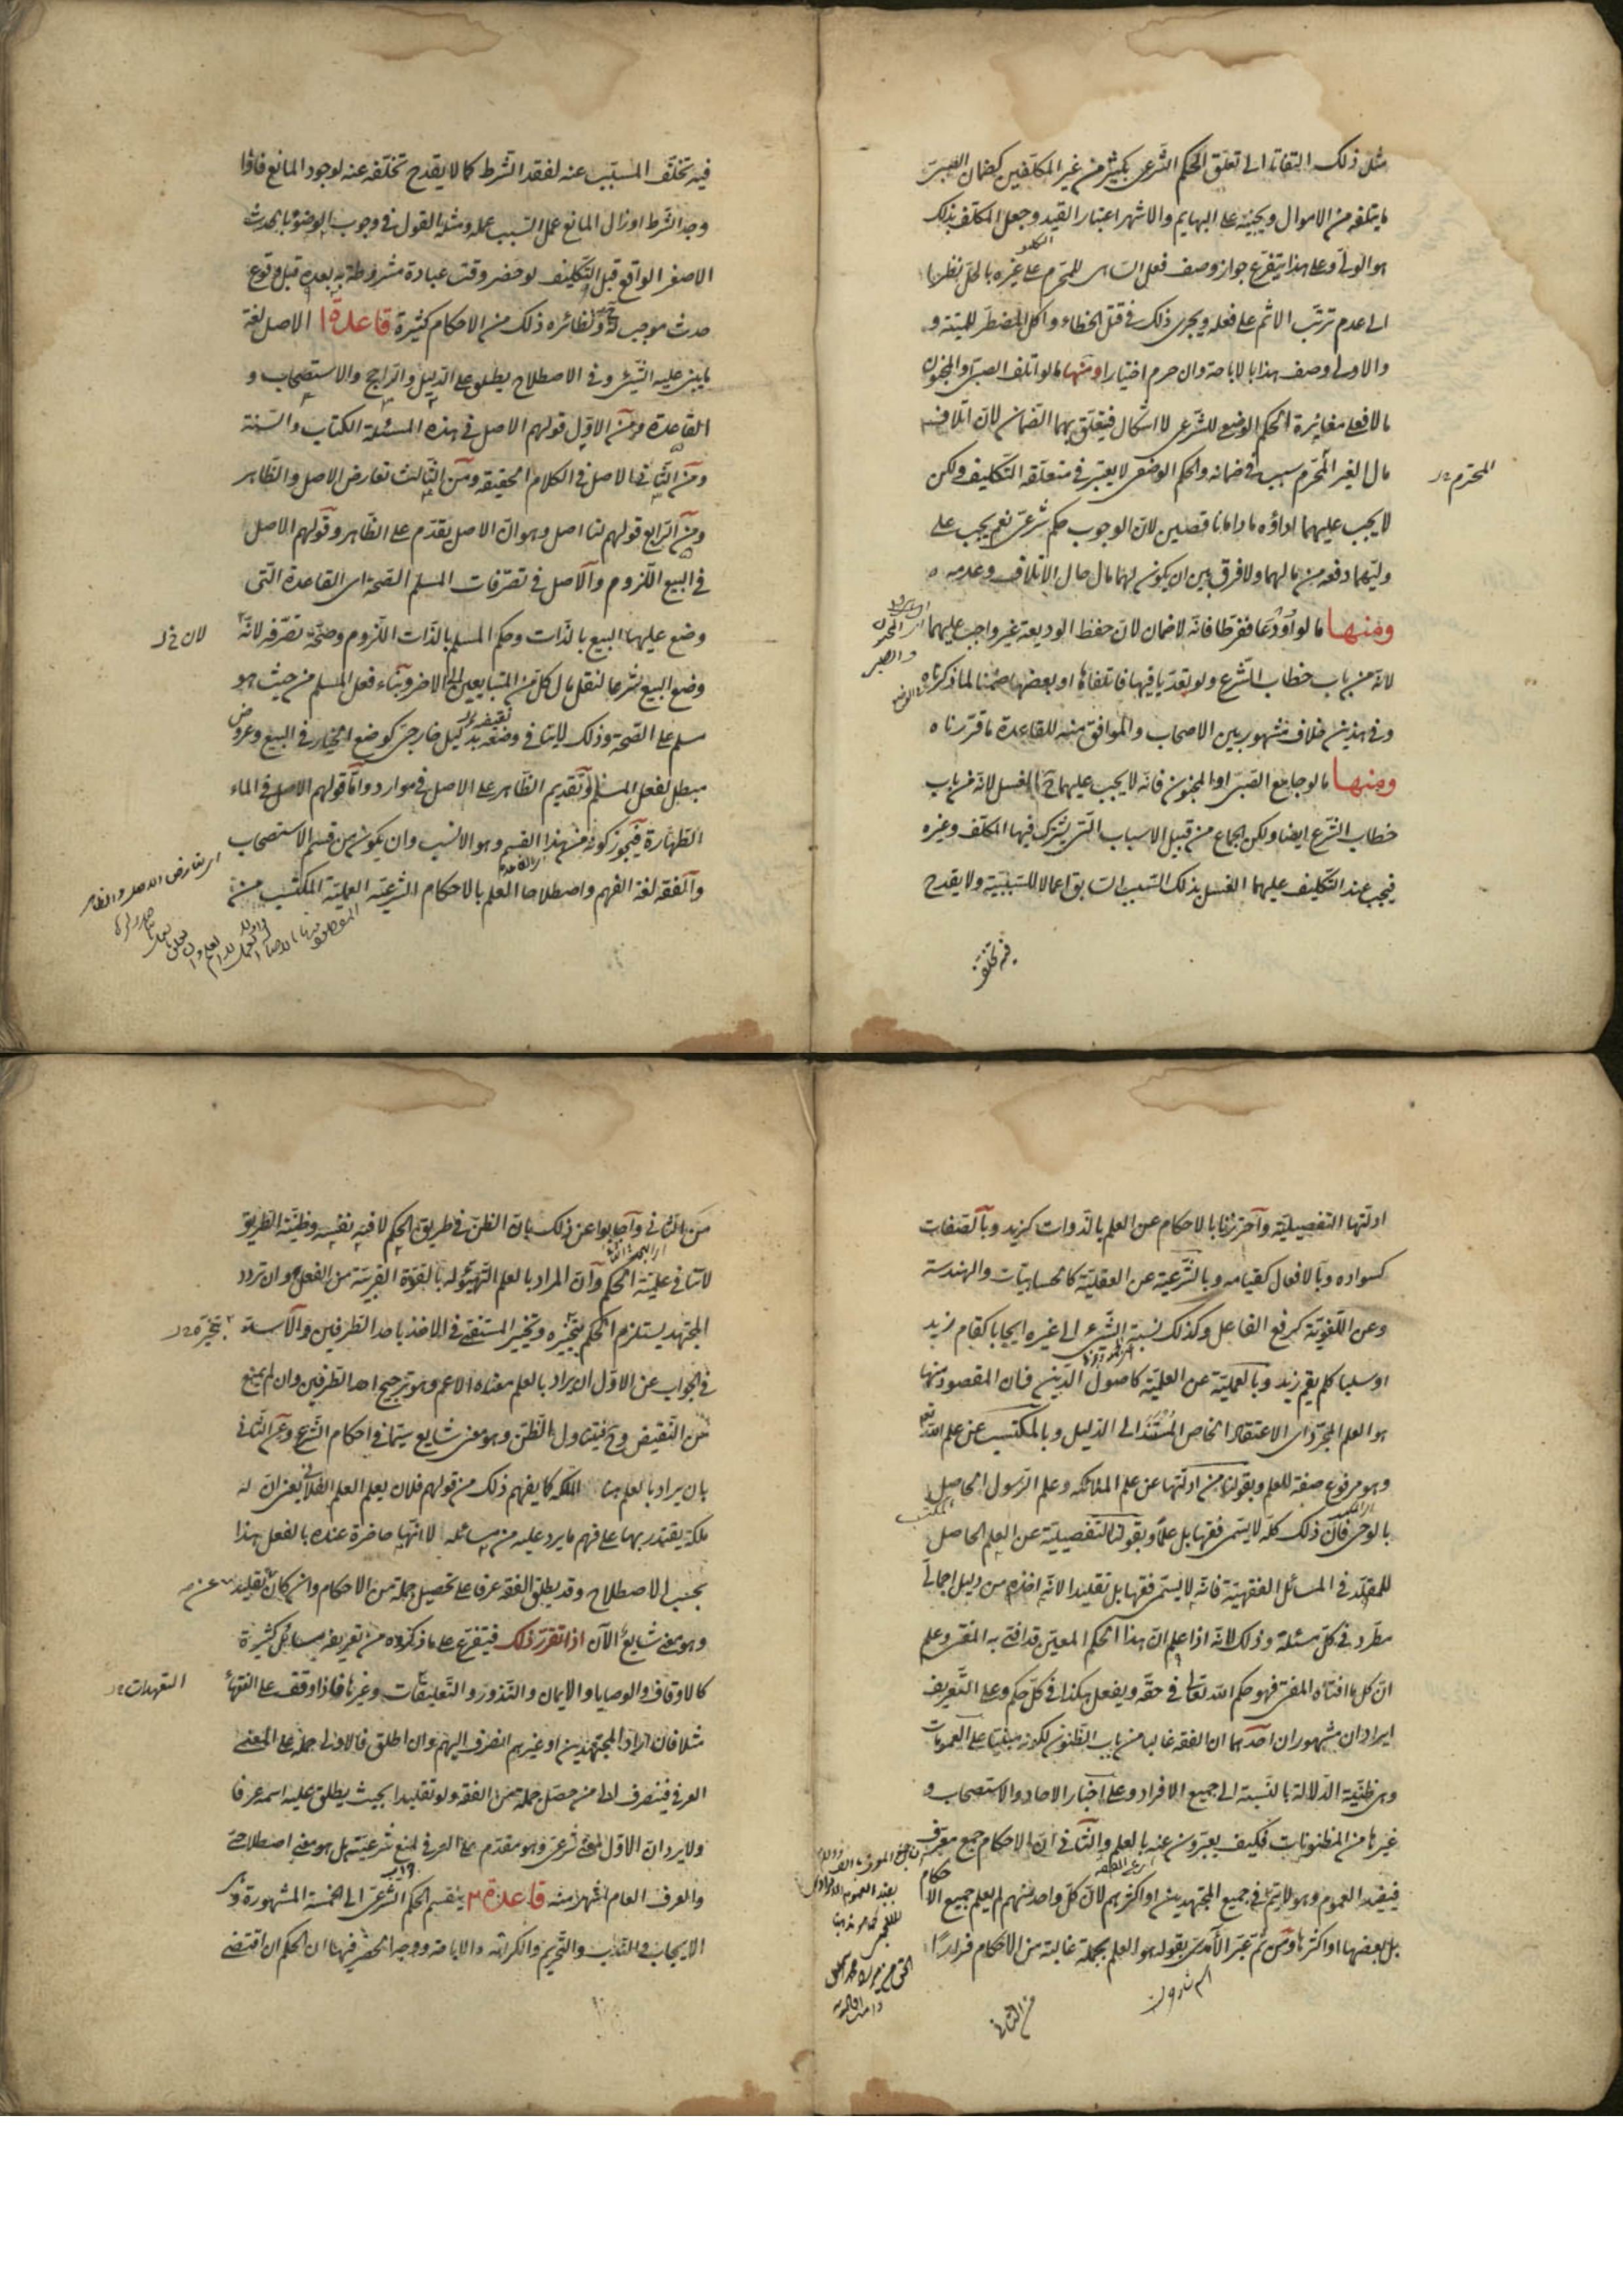 مثل ذلك التفاتا الى تعلق الحكم الشرعى بكثير من غير المكلفين كضمان الصبى
ما يتلفه من الاموال ويجنيه على البهايم والاشهر اعتبار القيد وجعل المكلف بذلك
هو الولى وعلى هذا يتفرع جواز وصف فعل الساهى للمحرم على غيره بالحل نظرا
الى عدم ترتب الاثم على فعله ويجرى ذلك فى قتل الخطاء واكل المضطر للميتة و
والاولى وصف هذا بالاباحة وان حرم اختيارا ومنها ما لو اتلف الصبى والمجنون
مالا فعلى مغايرة الحكم الوضعى للشرعى لا اشكال فيتعلق بهما الضمان لان اتلاف
مال الغير المحرم سبب فى ضمانه والحكم الوضعى لا يعتبر فى متعلقه التكليف ولكن
المحترم
لا يجب عليهما اداؤه ما داما ناقصين لان الوجوب حكم شرعى نعم يجب على
وليهما دفعه من مالهما ولا فرق بين ان يكون لهما مال حال الاتلاف وعدمه
ومنها ما لو اودعا ففرطا فانه لا ضمان لان حفظ الوديعة غير واجب عليهما
لانه من باب خطاب الشرع ولو تعديا فيها فاتلفاها او بعضها ضمنا لما ذكرناه
وفى هذين خلاف مشهور بين الاصحاب والموافق منه للقاعدة ما قررناه
ومنها ما لو جامع الصبى او المجنون فانه لا يجب عليهما ح الغسل لانه من باب
خطاب الشرع ايضا ولكن الجماع من قبيل الاسباب التى يشترك فيها المكلف وغيره
فيجب عند التكليف عليهما الغسل بذلك السبب السابق اعمالا للسببية ولا يقدح
فيه تخلف
فيه تخلف المسبب عنه لفقد الشرط كما لا يقدح تخلفه عنه لوجود المانع فاذا
وجد الشرط او زال المانع عمل السبب عمله ومثله القول فى وجوب الوضوء بالحدث
الاصغر الواقع قبل التكليف لو حضر وقت عبادة مشروطة به بعده قبل وقوع
حدث موجب له ح ونظائره ذلك من الاحكام كثيرة قاعدة ا الاصل لغة
ما يبنى عليه الشئ وفى الاصطلاح يطلق على الدليل والراجح والاستصحاب و
القاعدة ومن الاول قولهم الاصل فى هذه المسئلة الكتاب والسنة
ومن الثانى الاصل فى الكلام الحقيقة ومن الثالث تعارض الاصل والظاهر
ومن الرابع قولهم لنا اصل وهو ان الاصل يقدم على الظاهر وقولهم الاصل
فى البيع اللزوم والاصل فى تصرفات المسلم الصحة اى القاعدة التى
وضع عليها البيع بالذات وحكم المسلم بالذات اللزوم وصحة تصرفه لانه
لان خ ل
وضع البيع شرعا لنقل مال كل من المتبايعين الى الاخر وبناء فعل المسلم من حيث هو
مسلم على الصحة وذلك لا ينافى وضعه بدليل خارجى كوضع الخيار فى البيع وعروض
مبطل لفعل المسلم وتقديم الظاهر على الاصل فى موارد واما قولهم الاصل فى الماء
الطهارة فيجوز كونه من هذا القسم وهو الانسب وان يكون من قسم الاستصحاب
والفقه لغة الفهم واصطلاحا العلم بالاحكام الشرعية العملية المكتسب من
اى تعارض الاصل والظاهر
ادلتها التفصيلية واحترزنا بالاحكام عن العلم بالذوات كزيد وبالصفات
كسواده وبالافعال كقيامه وبالشرعية عن العقلية كالحسابيات والهندسة
وعن اللغوية كرفع الفاعل وكذلك نسبة الشئ الى غيره ايجابا كقام زيد
او سلبا كلم يقم زيد وبالعملية عن العلمية كاصول الدين فان المقصود منها
هو العلم المجرد اى الاعتقاد الخاص المستند الى الدليل وبالمكتسب عن علم الله تعالى
وهو مرفوع صفة للعلم وبقولنا من ادلتها عن علم الملائكة وعلم الرسول الحاصل
بالوحى فان ذلك كله لا يسمى فقها بل علما وبقولنا التفصيلية عن العلم الحاصل
للمقلد فى المسائل الفقهية فانه لا يسمى فقها بل تقليدا لانه اخذه من دليل اجمالى
مطرد فى كل مسئلة وذلك لانه اذا علم ان هذا الحكم المعين قد افتى به المفتى وعلم
ان كل ما افتاه المفتى فهو حكم الله تعالى فى حقه ويفعل هكذا فى كل حكم وعلى التعريف
ايرادان مشهوران احدهما ان الفقه غالبا من باب الظنون لكونه مبنيا على العمومات
وهى ظنية الدلالة بالنسبة الى جميع الافراد وعلى اخبار الاحاد والاستصحاب و
غيرها من المظنونات فكيف يعبرون عنه بالعلم والثانى ان الاحكام جمع معرف
فيفيد العموم وهو لا يتم فى جميع المجتهدين او اكثرهم لان كل واحد منهم لم يعلم جميع الاحكام
بل بعضها او اكثرها ومن ثم عبر الآمدى بقوله هو العلم بجملة غالبة من الاحكام فرارا
من الثانى
من الثانى واجابوا عن ذلك بان الظن فى طريق الحكم لا فيه نفسه وظنية الطريق
لا تنافى علمية الحكم وان المراد بالعلم التهيؤ له بالقوة القريبة من الفعل وان تردد
المجتهد يستلزم الحكم بتخيره وتخيير المستفتى فى الاخذ باحد الطرفين والاسد
بتخيره
فى الجواب عن الاول ان يراد بالعلم معناه الاعم وهو ترجيح احد الطرفين وان لم يمنع
من النقيض وح فيتناول الظن وهو معنى شايع سيما فى احكام الشرع وعن الثانى
بان يراد بالعلم هنا الملكة كما يفهم ذلك من قولهم فلان يعلم العلم الفلانى يعنى ان له
ملكة يقتدر بها على فهم ما يرد عليه من مسائله لا انها حاضرة عنده بالفعل هذا
بحسب الاصطلاح وقد يطلق الفقه عرفا على تحصيل جملة من الاحكام وان كان تقليدا
وهو معنى شايع الآن اذا تقرر ذلك فيتفرع على ما ذكروه من تعريفه مسائل كثيرة
كالاوقاف والوصايا والايمان والنذور والتعليقات وغيرها فاذا وقف على الفقهاء
التعهدات
مثلا فان اراد المجتهدين او غيرهم انصرف اليهم وان اطلق فالاولى حمله على المعنى
العرفى فينصرف الى من حصل جملة من الفقه ولو تقليدا بحيث يطلق عليه اسمه عرفا
ولا يرد ان الاول معنى شرعى وهو مقدم على العرفى لمنع شرعيته بل هو معنى اصطلاحى
والعرف العام اشهر منه قاعدة ٢ ينقسم الحكم الشرعى الى الخمسة المشهورة وهى
الايجاب والندب والتحريم والكراهة والاباحة ووجه الحصر فيها ان الحكم ان اقتضى